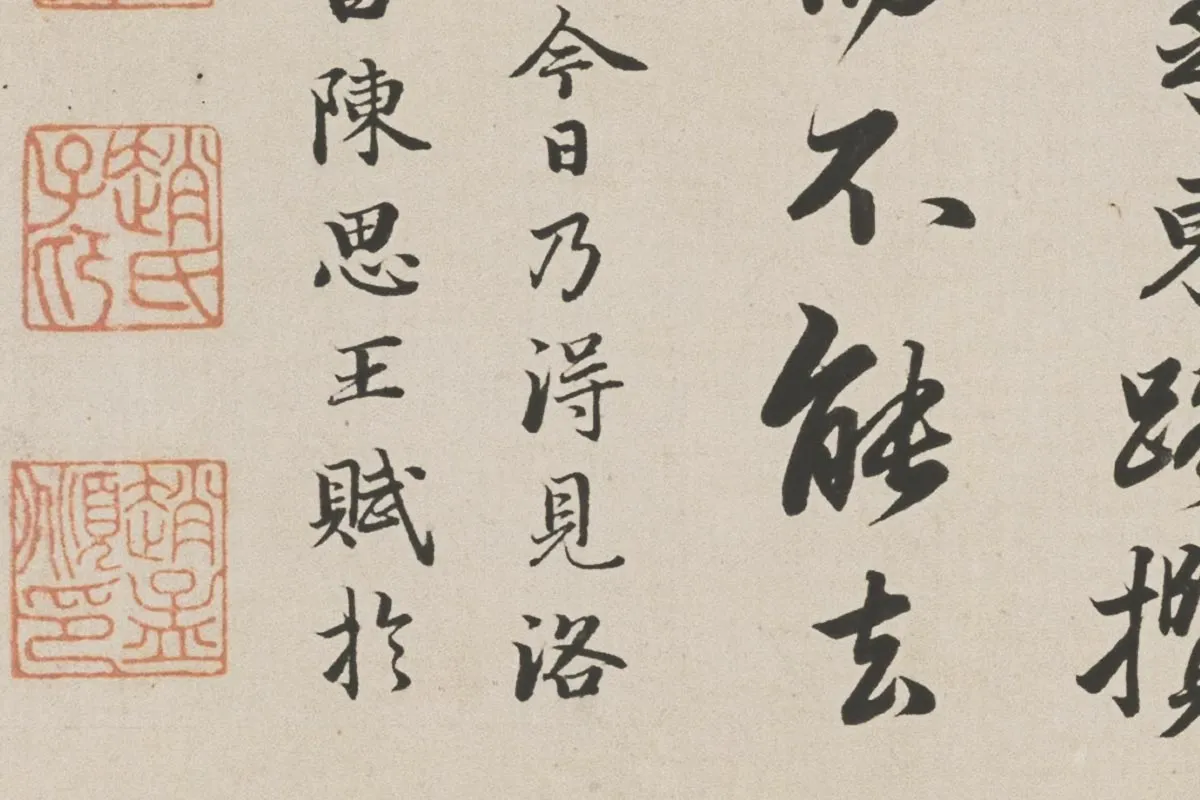 東路攬
不能去
今日乃得見洛
陳思王賦於
趙氏子昂
趙孟頫印